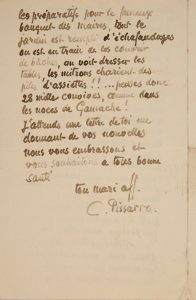 les préparatifs pour le fameux
banquet des maires, tout le
jardin est rempli d'échafaudages
on est en train de les couvrir
de bâches, on voit dresser les
tables, les mitrons charient des
piles d'assiettes !! ... pensez donc
28 mille convives comme dans
les noces de Gamache!
J'attends une lettre de toi me
donnant de vos nouvelles
nous vous embrassons et
vous souhaitons à tous bonne
santé
ton mari aff.
C. Pissarro